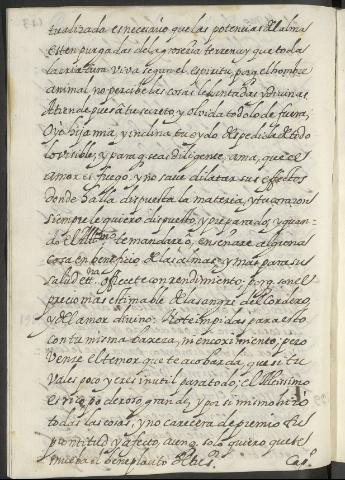 tualizado es necesario que las potencias del alma
esten purgadas de la groseria terrena y que toda
la criatura viva segun el espiritu, porq el hombre
animal no percibe las cosas levantadas y divinas
Atiende pues a tu secreto, y olvida todo lo de fuera,
Oye hija mia, y inclina tu oydo despedida de todo
lo visible, y para q seas diligente, ama, que el
amor es fuego, y no save dilatar sus effectos
donde halla dispuesta la materia, y tu corazon
siempre le quiero dispuesto, y preparado, y quan-
do el Altmo te mandare, o, enseñare alguna
cosa en beneficio de las almas, y mas para su
salud etrna. Ofrecete con rendimiento; porq son el
precio mas estimable de la sangre del Cordero,
y del amor divino. No te impidas para esto
con tu misma baxeza, ni encoximiento; pero
vence el temor que te acobarda, que si tu
vales poco y eres inutil para todo; el Altissimo
es rico, poderoso, grande, y por si mismo hizo
todas las cosas, y no carecera de premio tu
promtitud y afecto, aunq solo quiero que te
mueba el beneplacito de tu Sr.
Capo